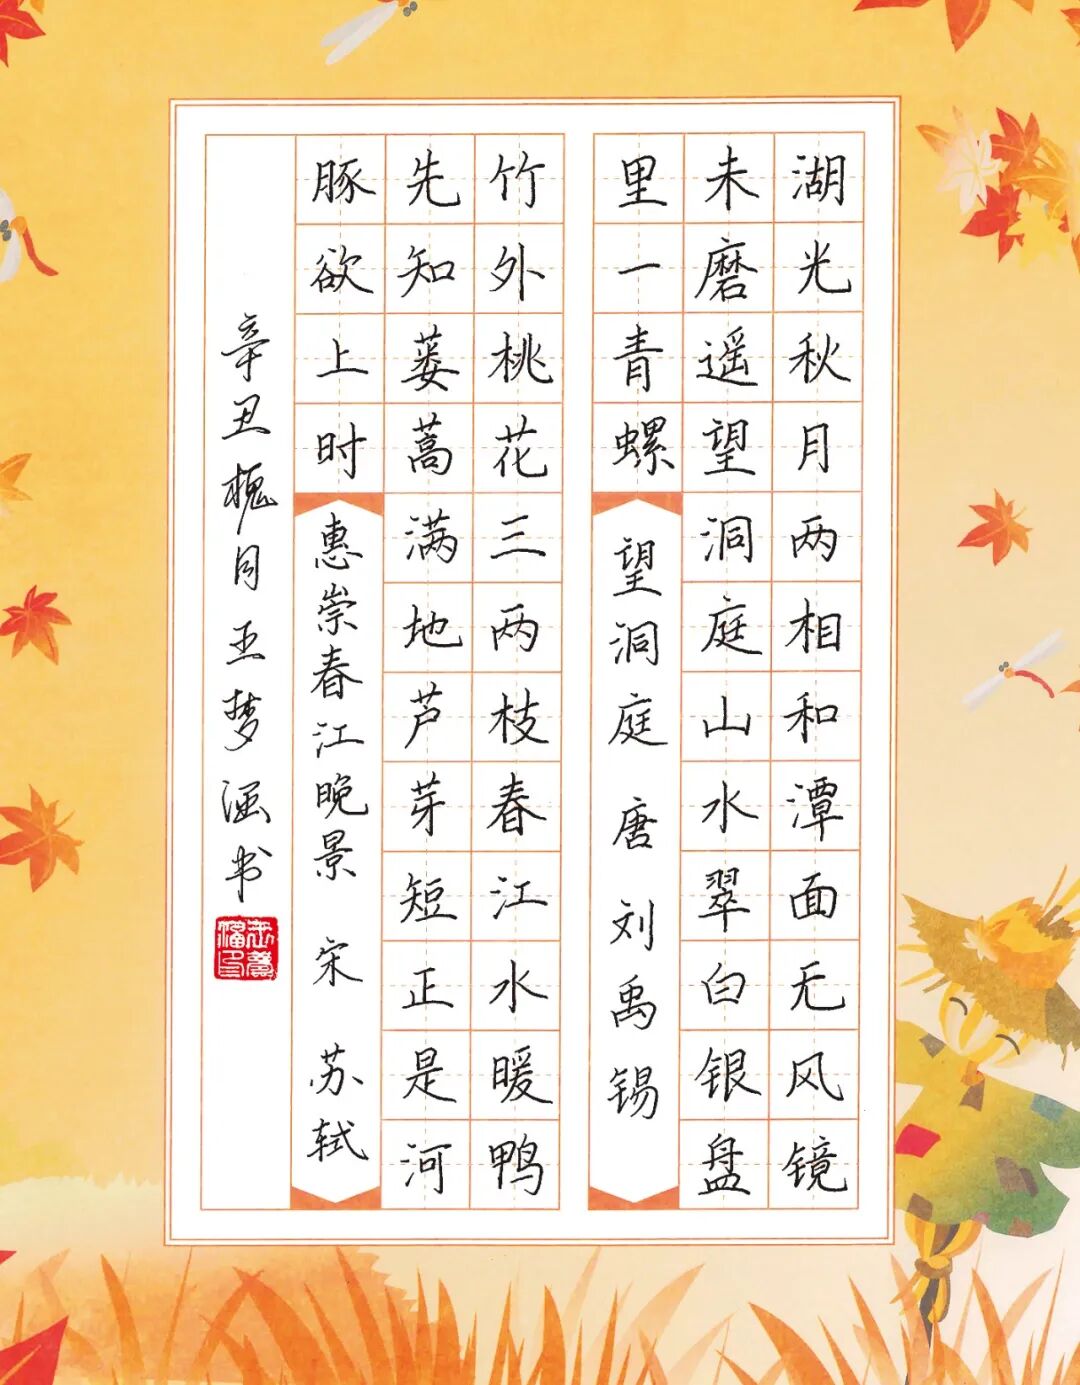 湖光秋月两相和潭面无风镜
未磨遥望洞庭山水翠白银盘
里一青螺
望洞庭 唐 刘禹锡
竹外桃花三两枝春江水暖鸭
先知蒌蒿满地芦芽短正是河
豚欲上时
惠崇春江晚景 宋 苏轼
辛丑槐月王梦涵书